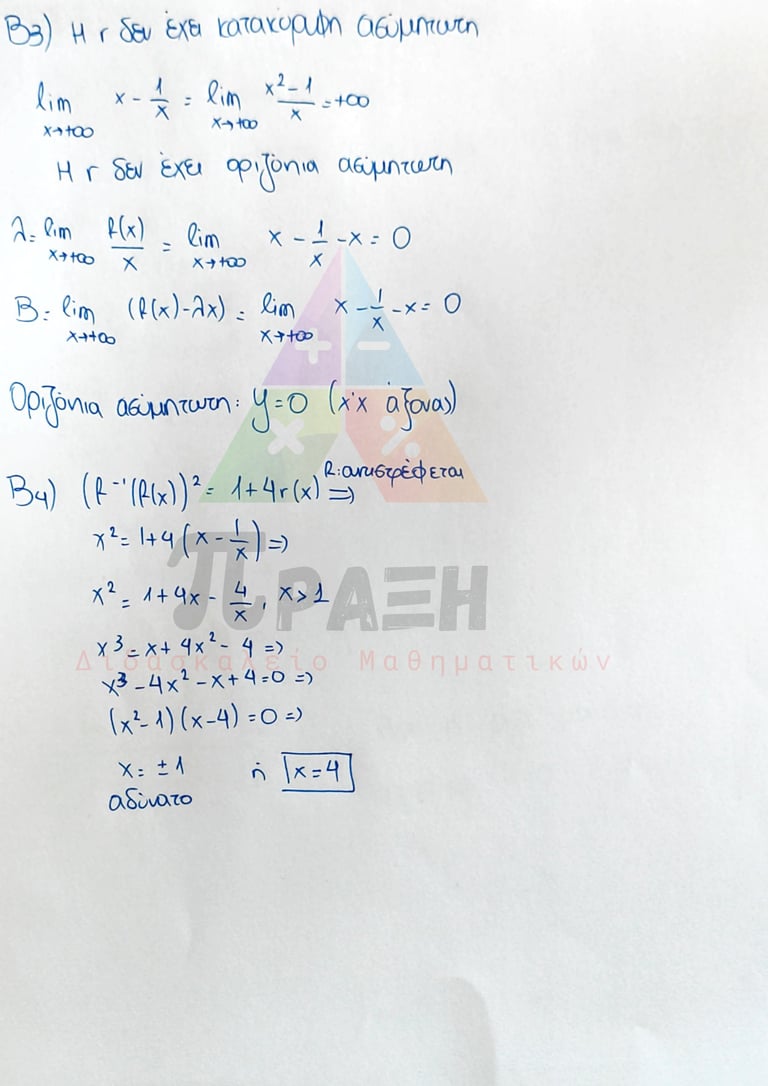 B3) Η r δεν έχει κατακόρυφη ασύμπτωτη
lim x→+∞ x - 1/x = lim x→+∞ (x² - 1)/x = +∞
Η r δεν έχει οριζόνια ασύμπτωτη
λ = lim x→+∞ R(x)/x = lim x→+∞ x - 1/x - x = 0
B = lim x→+∞ (R(x) - λx) = lim x→+∞ x - 1/x - x = 0
Οριζόνια ασύμπτωτη: y=0 (x'x άξονας)
B4) (R⁻¹(R(x))² = 1+4r(x) R: αντιστρέφεται ⇒
x² = 1+4(x - 1/x) ⇒
x² = 1+4x - 4/x, x>1
x³ = x + 4x² - 4 ⇒
x³ - 4x² - x + 4 = 0 ⇒
(x² - 1)(x - 4) = 0 ⇒
x = ±1 ή x = 4
αδύνατο
+ −
× %
ΠΡΑΞΗ
Διδασκαλείο Μαθηματικών